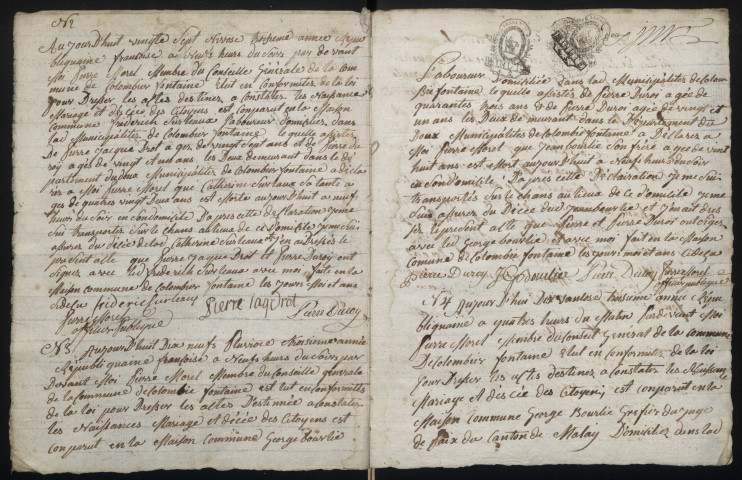 N 2
Aujourd'huit vingte Sept Nivose troisieme année Repu
bliquaine franseise a Neufe heurs du Soire par devant
Moi Pierre Morel Membre du Conseille Générale de la com
mune de Colombier fontaine Elut en Conformitez de la loi
pour Dresser les actes destinez a Constater les Naissance
Mariage et décée des Citoyens est conparut en la Maison
Commune frederich Surleaux Laboureur domicilier dans
lad Municipalitez de Colombier fontaine, lequelle assistez
De Pierre Jacque Drot agé de vingt Sept ans et de Pierre du
roy agé de vingt et un ans, les Deux demeurant dans le dé
partement du doux Municipalitez de Colombier fontaine a décla
rer a Moi pierre Morel que Catherine Surleaux Sa tante a
gée de quatres vingt Deux ans est Morte aujourd'huit a neuf
heurs du Soir en Son domicile Da pres cette déclaration je me
Sui transporter Sur le chans au lieux de ce Domicile je me Sui
assurez du décée de lad Catherine Surleaux j'en ai Dressez le
present alle que Pierre Jaque Drot et Pierre Duroy ont
Signez avec led frederich Surleaux avec moi fait en la
Maison commune de Colombier fontaine les jours Moi et ans
cidesu frideric surleaux
Pierre Morel Pierre Jaq Drot Pierre Duroy
officier publique
N 3 Aujourd'huit Dix neufs Pluviose troisieme année
Republiquaine françoise a Neufs heurs du Soirs par
Devant Moi Pierre Morel Membre du Conseille générale
de la Commune de Colombie fontaine est lut en conformitez
de la loi pour Dresser les alles Destinée a Constater
les Naissances Mariage et Décée des Citoyens est
conparut en la Maison Commune George Bourlie
Laboureur Domiciliée dans lad Municipalitez de Colom
bie fontaine, le quelle assistez de Pierre Duroi agée de
quarantes trois ans & de Pierre Duroi agée de vingt et
un ans les Deux de murant dans le Département du
Doux Municipalitez de Colombié fontaine a Déclarez a
Moi pierre Morel que Jean bourlie Son frère agée de vingt
huit ans est Mort aujourd'huit a Neufs heurs du Soir
en Son domicile Da pres cette Déclaration je me Sui
transportez Sur le chans au lieux de ce domicile je me
Sui assurez du Décée dud Jean bourlie et j'en ait dres
sez le present alle que Pierre et Pierre Duroi ont signez
avec led George bourlie et avec moi fait en la Maison
Comune de Colombie fontaine les jours moi et ans cidesu
pierre Duroy J G bourlie Pierre Duroy Pierre Morel
officier publique
N 4 Aujourd'hui Dix vantose troisieme année Repu
bliquaine a quatres heurs du Matin Pardevant Moi
Pierre Morel Membre du Conseil Général de la commune
De Colombier fontaine Elut en conformitez de la loi
pour Dresser les actes destinez a constater les Naissances
Mariage et des cée des Citoyens est conparut en la
Maison Commune George Bourlie Grefier du juge
de paix du Canton de Malay Domicilier dans lad